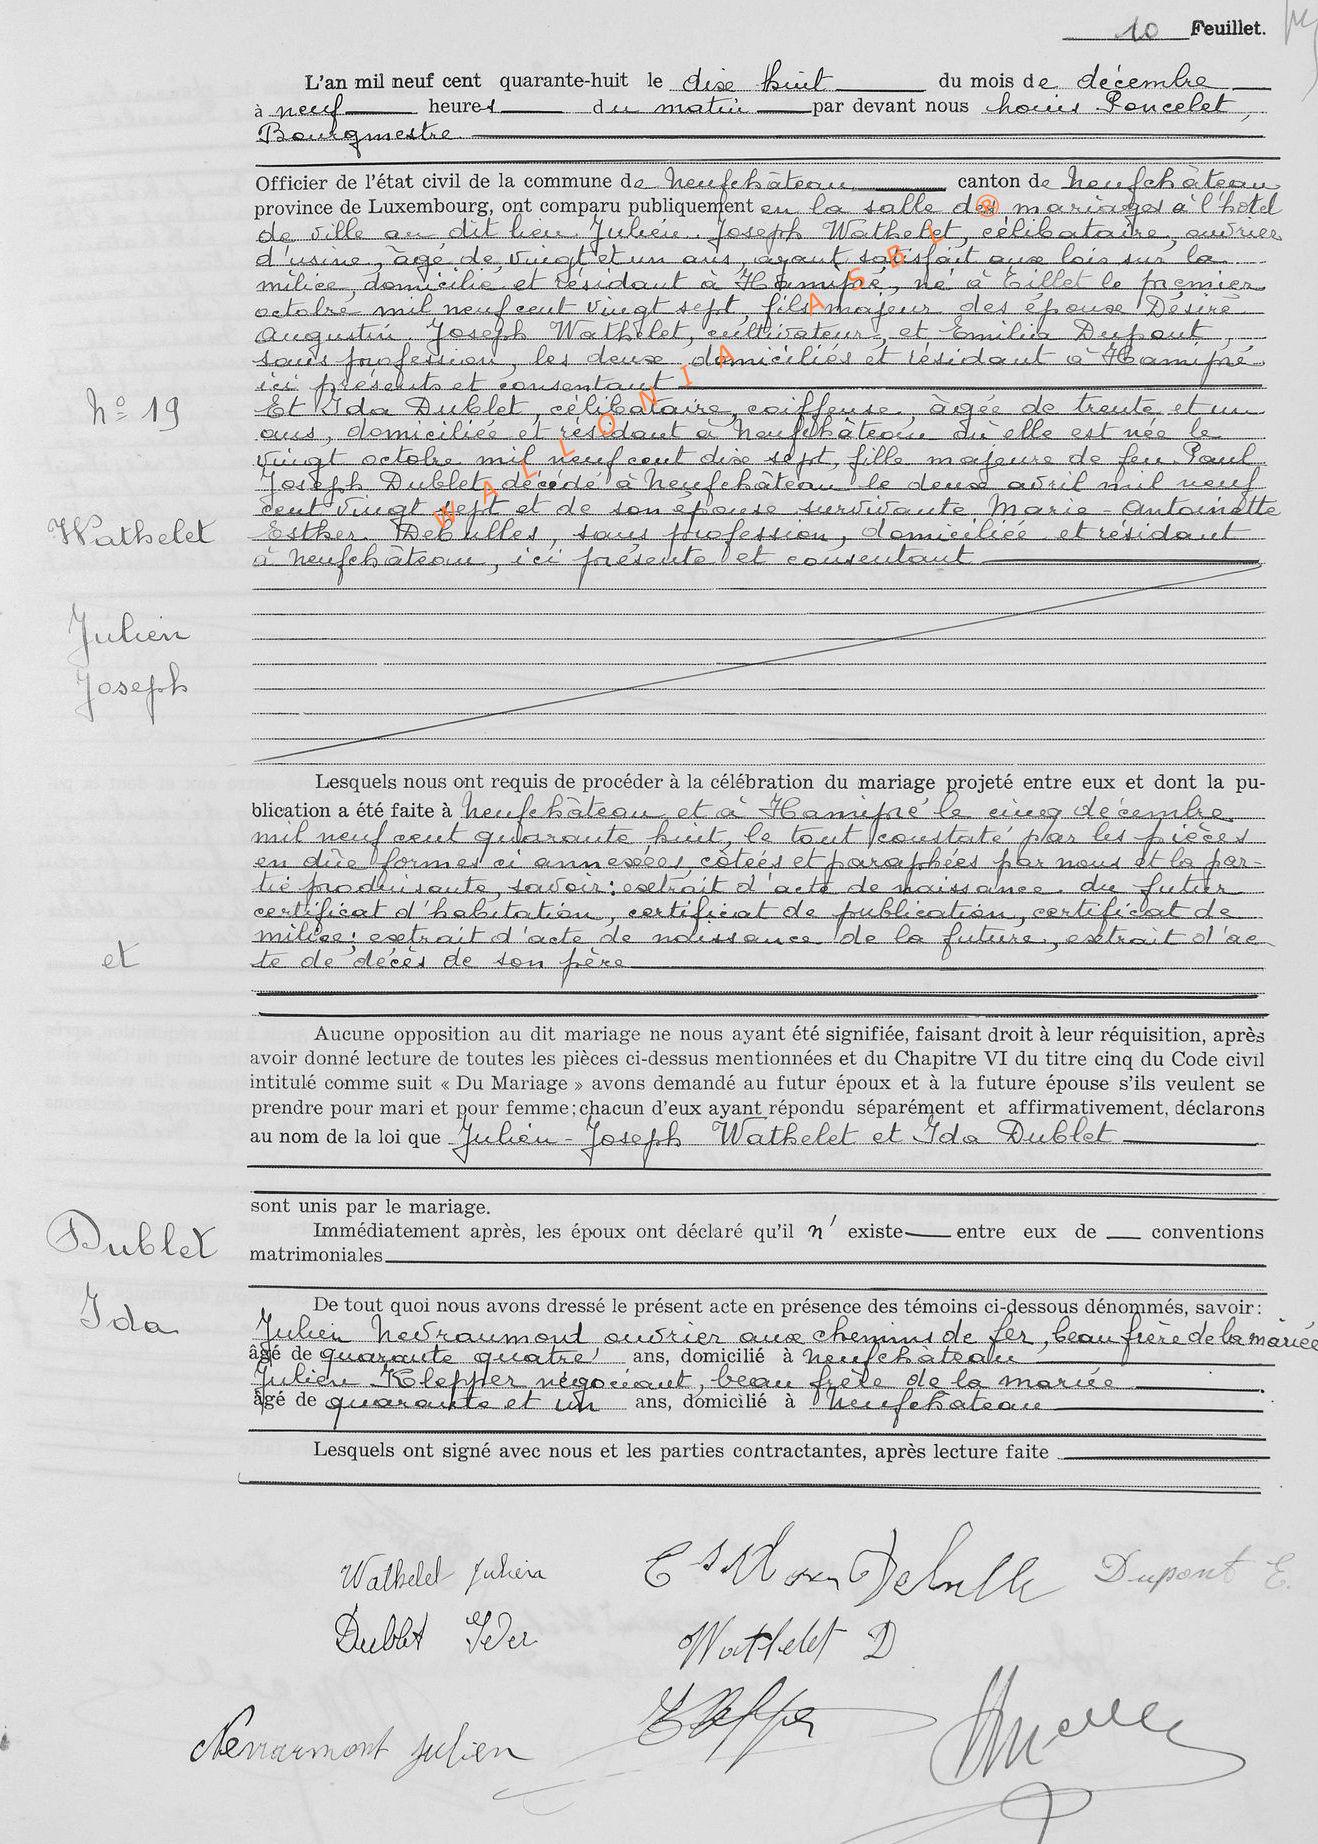 10 Feuillet.
L'an mil neuf cent quarante-huit le dix huit du mois de décembre
à neuf heures du matin par devant nous Louis Poncelet,
Bourgmestre
Officier de l'état civil de la commune de Neufchâteau canton de Neufchâteau
province de Luxembourg, ont comparu publiquement en la salle des mariages à l'hôtel
de ville au dit lieu Julien Joseph Wathelet, célibataire, ouvrier
d'usine, âgé de vingt et un ans, ayant satisfait aux lois sur la
milice, domicilié et résidant à Hamipré, né à Tillet le premier
octobre mil neuf cent vingt sept, fils majeur des époux Désiré
Augustin Joseph Wathelet, cultivateur, et Emilia Dupont,
sans profession, les deux domiciliés et résidant à Hamipré
ici présents et consentant
Et Ida Dublet, célibataire, coiffeuse, âgée de trente et un
ans, domiciliée et résidant à Neufchâteau où elle est née le
vingt octobre mil neuf cent dix sept, fille majeure de feu Paul
Joseph Dublet décédé à Neufchâteau le deux avril mil neuf
cent vingt sept et de son épouse survivante Marie-Antoinette
Esther Dehulles, sans profession, domiciliée et résidant
à Neufchâteau, ici présente et consentant
No 19
Wathelet
Julien
Joseph
et
Dublet
Ida
WALLONIA ASBL ®
Lesquels nous ont requis de procéder à la célébration du mariage projeté entre eux et dont la pu-
blication a été faite à Neufchâteau et à Hamipré le cinq décembre
mil neuf cent quarante huit, le tout constaté par les pièces
en dûe formes ci annexées, côtées et paraphées par nous et la par-
tie produisante, savoir: extrait d'acte de naissance du futur
certificat d'habitation, certificat de publication, certificat de
milice; extrait d'acte de naissance de la future, extrait d'ac
te de décès de son père
Aucune opposition au dit mariage ne nous ayant été signifiée, faisant droit à leur réquisition, après
avoir donné lecture de toutes les pièces ci-dessus mentionnées et du Chapitre VI du titre cinq du Code civil
intitulé comme suit « Du Mariage » avons demandé au futur époux et à la future épouse s'ils veulent se
prendre pour mari et pour femme; chacun d'eux ayant répondu séparément et affirmativement, déclarons
au nom de la loi que Julien-Joseph Wathelet et Ida Dublet
sont unis par le mariage.
Immédiatement après, les époux ont déclaré qu'il n' existe entre eux de conventions
matrimoniales
De tout quoi nous avons dressé le présent acte en présence des témoins ci-dessous dénommés, savoir:
Julien Nevraumont ouvrier aux chemins de fer, beau frère de la mariée
âgé de quarante quatre ans, domicilié à Neufchâteau
Julien Klepper négociant, beau frère de la mariée
âgé de quarante et un ans, domicilié à Neufchâteau
Lesquels ont signé avec nous et les parties contractantes, après lecture faite
Wathelet Julien
Dupont E.
Dublet Ida
Wathelet D
Klepper
Nevraumont Julien